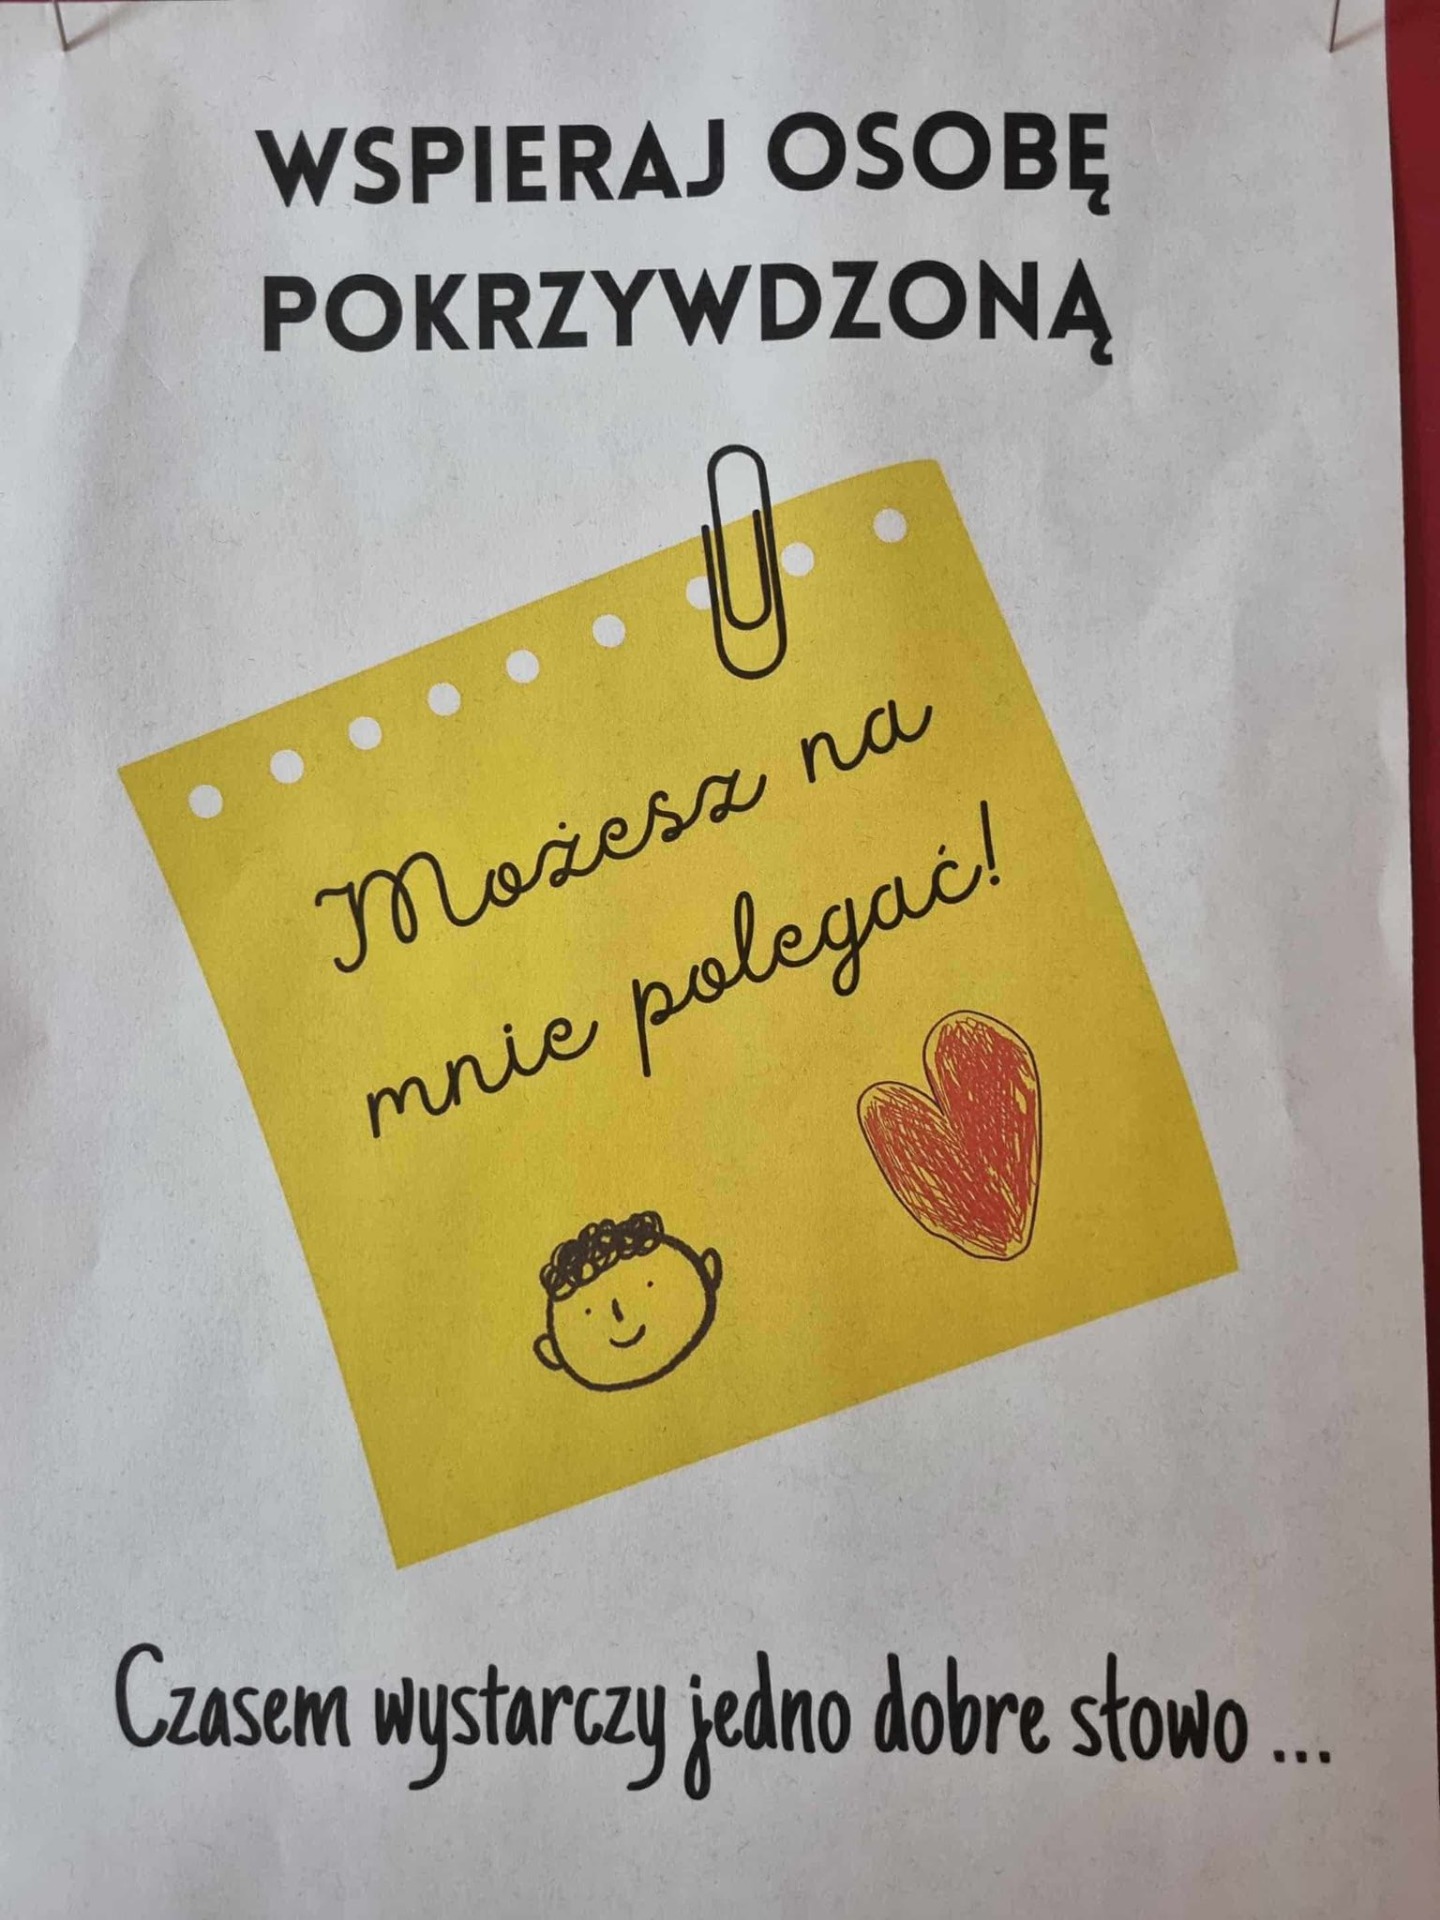 WSPIERAJ OSOBĘ
POKRZYWDZONĄ
Możesz na
mnie polegać!
Czasem wystarczy jedno dobre słowo ...